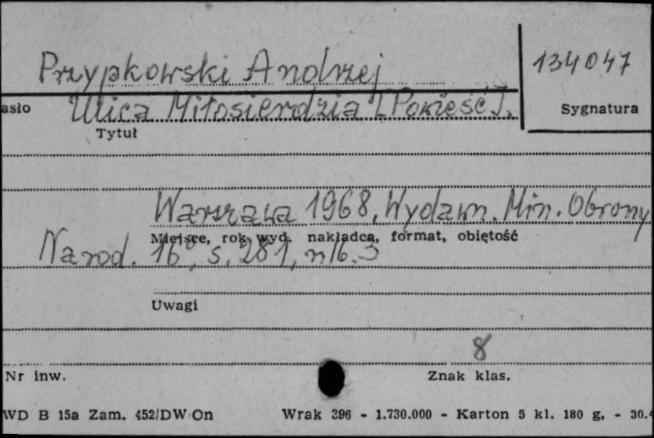 Przypkowski Andrzej
134047
asło Ulica Miłosierdzia [Powieść].
Sygnatura
Tytuł
Warszawa 1968, Wydawn. Min. Obrony
Miejsce, rok wyd. nakładca, format, objętość
Narod. 16°, s. 281, nlb. 3
Uwagi
8
Nr inw.
Znak klas.
WD B 15a Zam. 452/DW On Wrak 396 - 1.730.000 - Karton 5 kl. 180 g. - 30.4